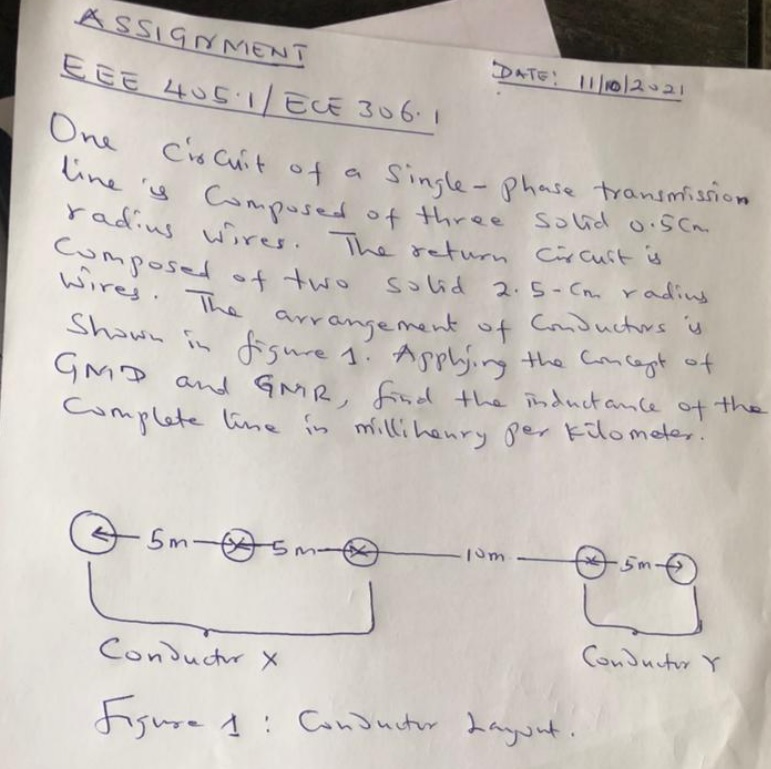 ASSIGNMENT
DATE: 11/10/2021
EEE 405.1/ECE 306.1
One Circuit of a Single-phase transmission
line is Composed of three Solid 0.5Cm
radius wires. The return Circuit is
Composed of two solid 2.5-Cm radius
Wires. The arrangement of Conductors is
Shown in figure 1. Applying the Concept of
GMD and GMR, find the inductance of the
Complete line in millihenry per Kilometer.
5m 5m 10m 5m
Conductor X Conductor Y
Figure 1: Conductor Layout.